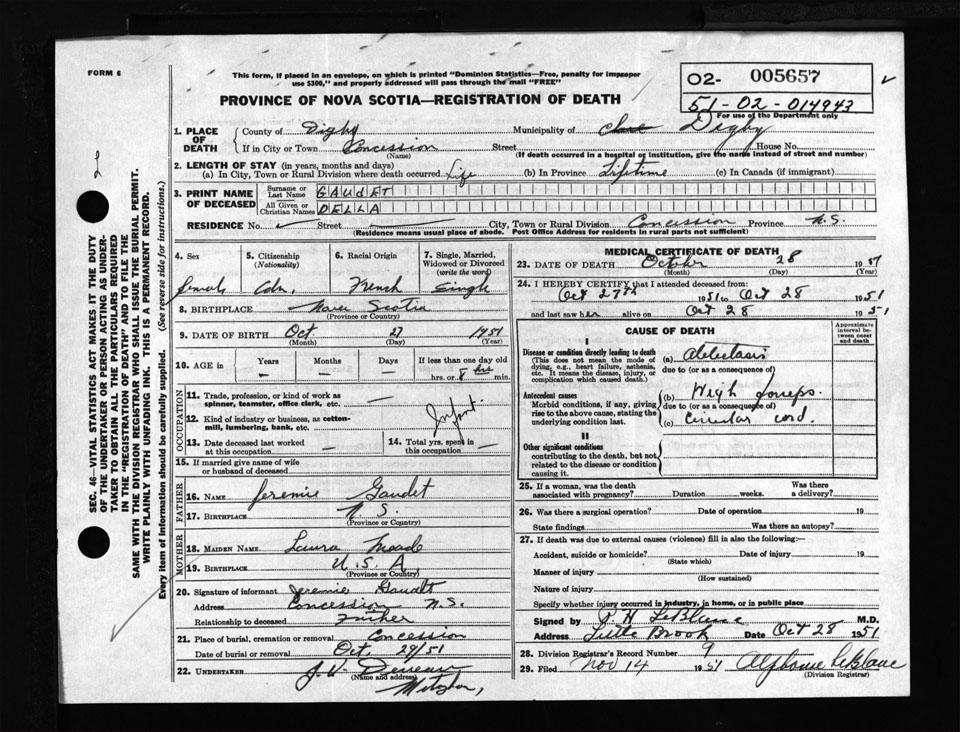 FORM 6
This form, if placed in an envelope, on which is printed "Dominion Statistics—Free, penalty for improper
use $300," and properly addressed will pass through the mail "FREE"
PROVINCE OF NOVA SCOTIA—REGISTRATION OF DEATH
02- 005657
51-02-014943
For use of the Department only
1. PLACE OF DEATH
County of Digby Municipality of Clare Digby
If in City or Town Concession Street House No.
(Name) (If death occurred in a hospital or institution, give the name instead of street and number)
2. LENGTH OF STAY (in years, months and days)
(a) In City, Town or Rural Division where death occurred Life (b) In Province Lifetime (c) In Canada (if immigrant)
3. PRINT NAME OF DECEASED
Surname or Last Name GAUDET
All Given or Christian Names DELLA
RESIDENCE No. Street City, Town or Rural Division Concession Province N.S.
(Residence means usual place of abode. Post Office Address for residents in rural parts not sufficient)
4. Sex female
5. Citizenship (Nationality) Cdn.
6. Racial Origin French
7. Single, Married, Widowed or Divorced (write the word) Single
8. BIRTHPLACE Nova Scotia
(Province or Country)
9. DATE OF BIRTH Oct. 27 1951
(Month) (Day) (Year)
10. AGE in Years — Months — Days — If less than one day old
hrs. or 8 hrs min.
OCCUPATION
11. Trade, profession, or kind of work as spinner, teamster, office clerk, etc. —
12. Kind of industry or business, as cotton-mill, lumbering, bank, etc. Infant.
13. Date deceased last worked at this occupation —
14. Total yrs. spent in this occupation —
15. If married give name of wife or husband of deceased
FATHER
16. NAME Jeremie Gaudet
17. BIRTHPLACE N.S.
(Province or Country)
MOTHER
18. MAIDEN NAME Laura Meade
19. BIRTHPLACE U.S.A
(Province or Country)
20. Signature of informant Jeremie Gaudet
Address Concession N.S.
Relationship to deceased Father
21. Place of burial, cremation or removal Concession
Date of burial or removal Oct. 29/51
22. UNDERTAKER J.V. Deveau
(Name and address)
MEDICAL CERTIFICATE OF DEATH
23. DATE OF DEATH October 28 1951
(Month) (Day) (Year)
24. I HEREBY CERTIFY that I attended deceased from:
Oct 27th 1951 to Oct 28 1951
and last saw her alive on Oct 28 1951
CAUSE OF DEATH
Approximate interval between onset and death
I
Disease or condition directly leading to death
(This does not mean the mode of dying, e.g., heart failure, asthenia, etc. It means the disease, injury, or complication which caused death.)
(a) Atelectasis
due to (or as a consequence of)
Antecedent causes
Morbid conditions, if any, giving rise to the above cause, stating the underlying condition last.
(b) High forceps.
due to (or as a consequence of)
(c) Circular cord.
II
Other significant conditions
contributing to the death, but not related to the disease or condition causing it.
25. If a woman, was the death associated with pregnancy? Duration weeks. Was there a delivery?
26. Was there a surgical operation? Date of operation 19
State findings Was there an autopsy?
27. If death was due to external causes (violence) fill in also the following:—
Accident, suicide or homicide? Date of injury 19
(State which)
Manner of injury
(How sustained)
Nature of injury
Specify whether injury occurred in industry, in home, or in public place
Signed by P. H. LeBlanc M.D.
Address Little Brook Date Oct 28 1951
28. Division Registrar's Record Number 9
29. Filed Nov 14 1951 Alphonse LeBlanc
(Division Registrar)
SEC. 46—VITAL STATISTICS ACT MAKES IT THE DUTY
OF THE UNDERTAKER OR PERSON ACTING AS UNDER-
TAKER TO OBTAIN ALL THE PARTICULARS REQUIRED
IN THE "REGISTRATION OF DEATH" AND TO FILE THE
SAME WITH THE DIVISION REGISTRAR WHO SHALL ISSUE THE BURIAL PERMIT.
WRITE PLAINLY WITH UNFADING INK. THIS IS A PERMANENT RECORD.
Every item of information should be carefully supplied. (See reverse side for instructions.)